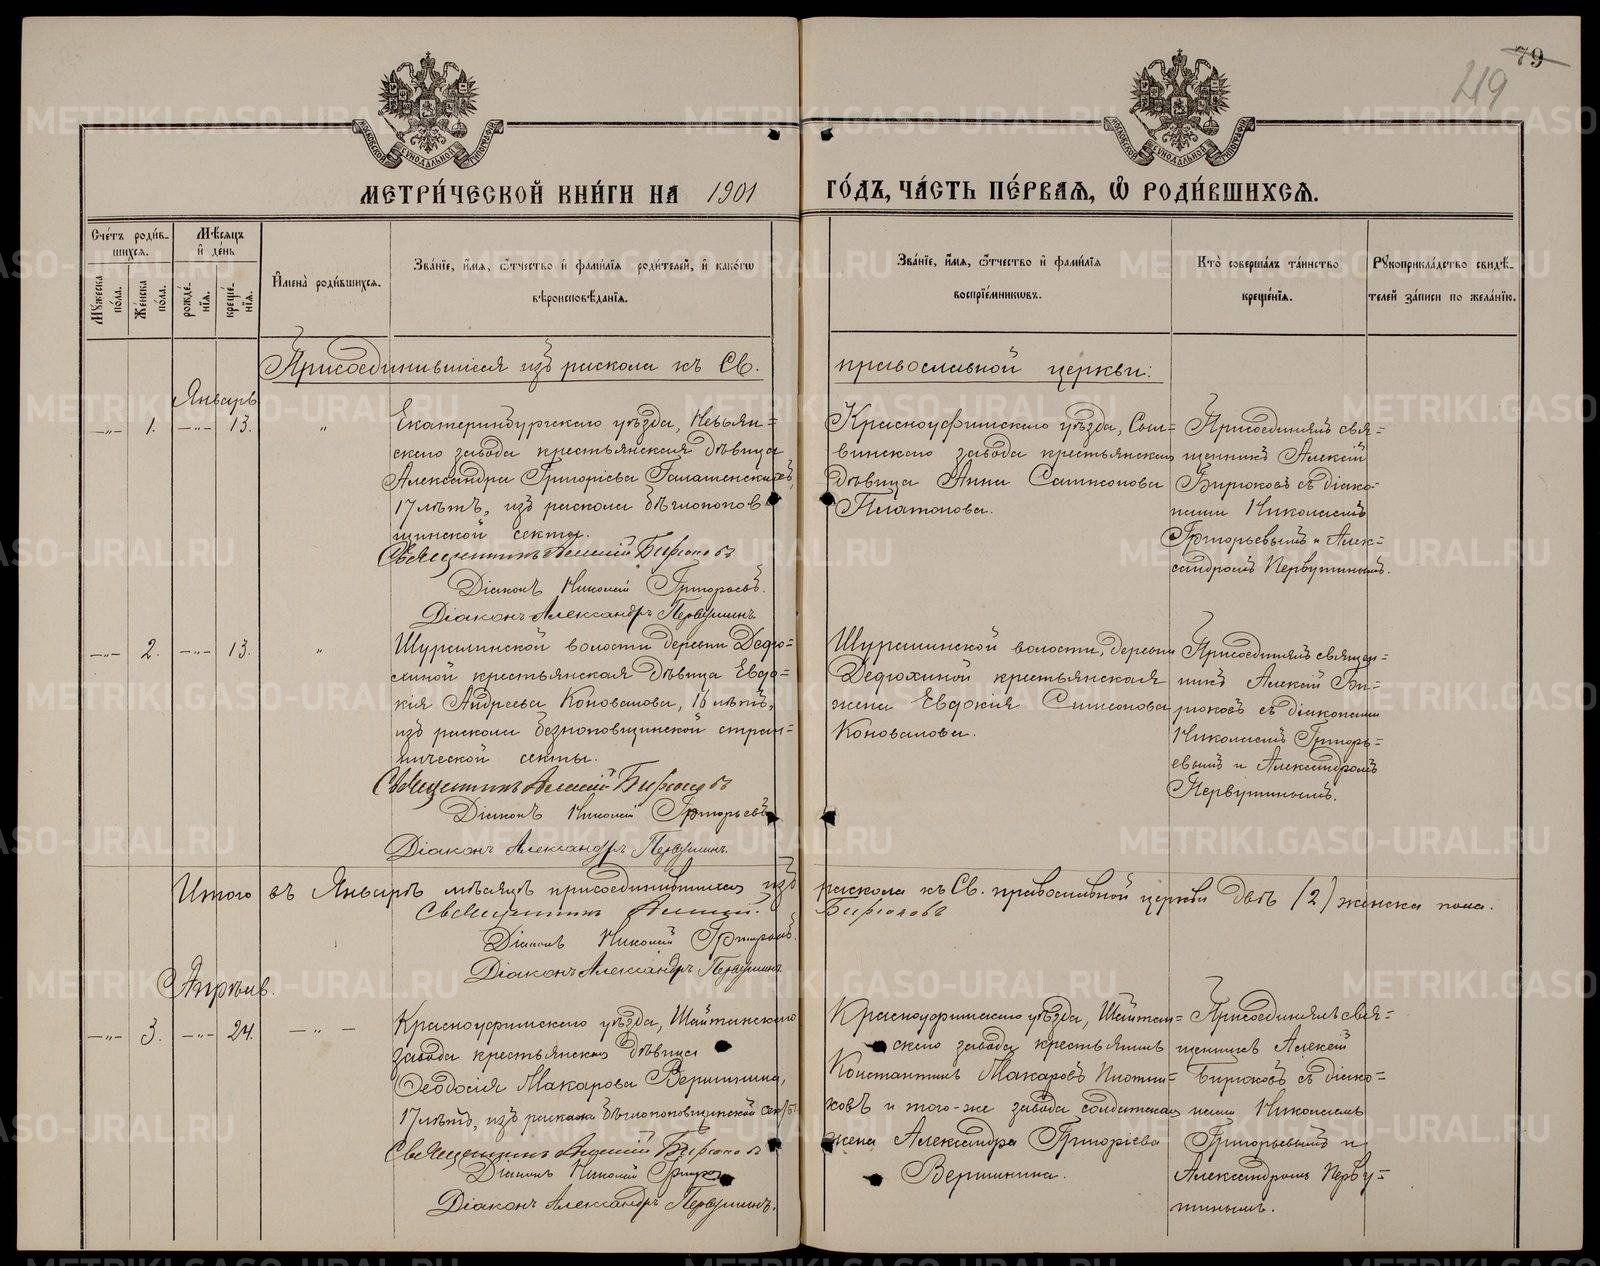 79
419
МЕТРИ́ЧЕСКОЙ КНИ́ГИ НА 1901 ГО́ДЪ, ЧА́СТЬ ПЕ́РВАѦ, Ѡ РОДИ́ВШИХСѦ.
Сче́тъ роди́в-
шихсѧ.
Мужеска по́ла.
Же́нска по́ла.
Мѣ́сѧцъ
и҆ де́нь
рожде́-
нїѧ.
креще́-
нїѧ.
И҆мена̀ роди́вшихсѧ.
Зва́нїе, и҆́мѧ, ѻ҆́тчество и҆ фами́лїѧ роди́телей, и҆ како́гѡ
вѣроисповѣ́данїѧ.
Зва́нїе, и҆́мѧ, ѻ҆́тчество и҆ фами́лїѧ
воспрїе́мникѡвъ.
Кто̀ соверша́лъ та́инство
креще́нїѧ.
Рꙋкоприкла́дство свидѣ́-
телей за́писи по жела́нїю.
Присоединившіеся изъ раскола къ Св. православной церкви:
Январь
—"— 1. —"— 13. "
Екатеринбургскаго уѣзда, Невьян=
скаго завода крестьянская дѣвица
Александра Григоріева Галашенскихъ,
17 лѣтъ, изъ раскола бѣглопопов
щинской секты.
Священникъ Алексій Бирюковъ
Діаконъ Николай Григорьевъ.
Діаконъ Александръ Первушинъ.
Красноуфимскаго уѣзда, Сыл=
винскаго завода крестьянская
дѣвица Анна Сампсонова
Платонова.
Присоединялъ свя=
щенникъ Алексій
Бирюковъ съ діако-
нами Николаемъ
Григорьевымъ и Алек=
сандромъ Первушинымъ.
—"— 2. —"— 13. "
Шуралинской волости деревни Дедю=
хиной крестьянская дѣвица Евдо=
кія Андреева Коновалова, 16 лѣтъ,
изъ раскола безпоповщинской стран-
нической секты.
Священникъ Алексій Бирюковъ
Діаконъ Николай Григорьевъ
Діаконъ Александръ Первушинъ.
Шуралинской волости, деревни
Дедюхиной крестьянская
жена Евдокія Симеонова
Коновалова.
Присоединялъ священ=
никъ Алексій Би=
рюковъ съ діаконами
Николаемъ Григорь=
евымъ и Александромъ
Первушинымъ.
Итого въ Январѣ мѣсяцѣ присоединившихся изъ раскола къ Св. православной церкви двѣ (2) женска пола.
Священникъ Алексій Бирюковъ
Діаконъ Николай Григорьевъ.
Діаконъ Александръ Первушинъ
Апрѣль.
—"— 3. —"— 24. — " —
Красноуфимскаго уѣзда, Шайтанскаго
завода крестьянская дѣвица
Ѳеодосія Макарова Вершинина,
17 лѣтъ, изъ раскола бѣглопоповщинской секты
Священникъ Алексій Бирюковъ
Діаконъ Николай Григорьевъ
Діаконъ Александръ Первушинъ.
Красноуфимскаго уѣзда, Шайтан=
скаго завода крестьянинъ
Константинъ Макаровъ Плотни=
ковъ и того-же завода солдатская
жена Александра Григоріева
Вершинина.
Присоединялъ свя=
щенникъ Алексій
Бирюковъ съ діако=
нами Николаемъ
Григорьевымъ и
Александромъ Перву=
шинымъ.
METRIKI.GASO-URAL.RU